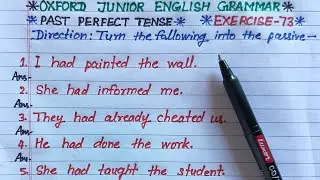 *OXFORD JUNIOR ENGLISH GRAMMAR*
*PAST PERFECT TENSE* *EXERCISE-73*
Direction: Turn the following into the passive-
1. I had painted the wall.
Ans-
2. She had informed me.
Ans-
3. They had already cheated us.
Ans-
4. He had done the work.
Ans-
5. She had taught the student.